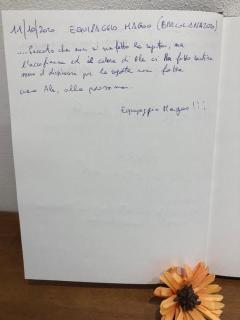 11/10/2020 EQUIPAGGIO MAGOO (BRACCIANO2020)
.... Peccato che non si sia fatta la regata, ma
l'accoglienza ed il calore di Ale ci ha fatto sentire
meno il dispiacere per la regata non fatta
ciao Ale, alla prossima..
Equipaggio Magoo!!!